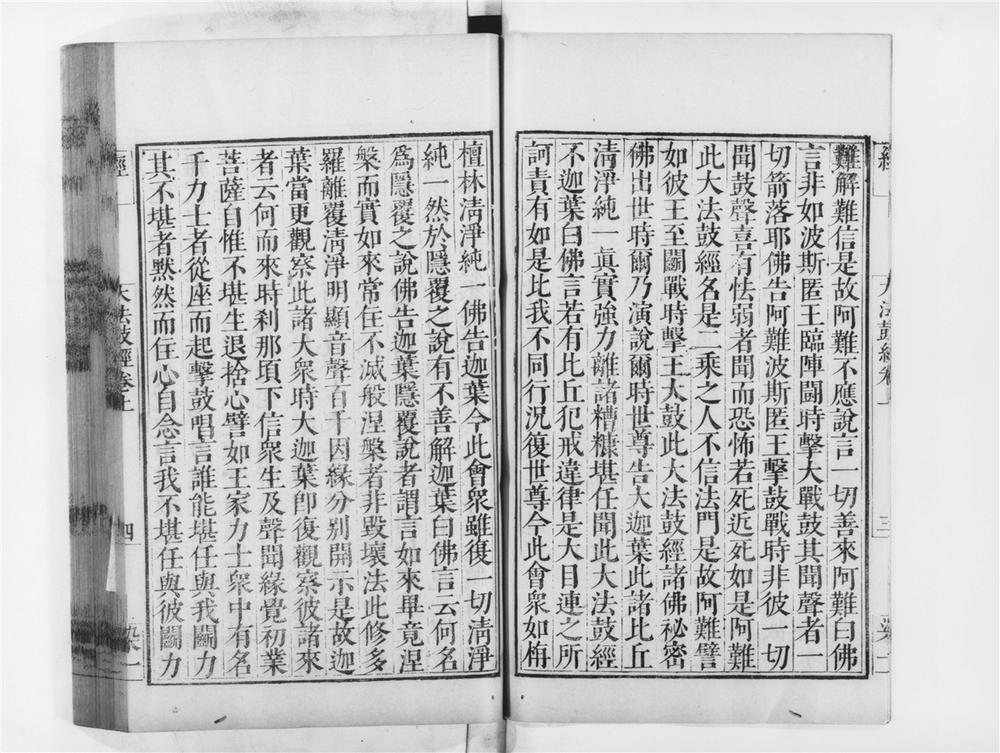 難解難信是故阿難不應說言一切善來阿難曰佛
言非如波斯匿王臨陣鬪時擊大戰鼓其聞聲者一
切箭落耶佛告阿難波斯匿王擊鼓戰時非彼一切
聞鼓聲喜有怯弱者聞而恐怖若死近死如是阿難
此大法鼓經名是二乘之人不信法門是故阿難譬
如彼王至鬪戰時擊王大鼓此大法鼓經諸佛祕密
佛出世時爾乃演說爾時世尊告大迦葉此諸比丘
清淨純一眞實強力離諸糟糠堪任聞此大法鼓經
不迦葉白佛言若有比丘犯戒違律是大目連之所
訶責有如是比我不同行況復世尊今此會衆如栴
檀林清淨純一佛告迦葉今此會衆雖復一切清淨
純一然於隱覆之說有不善解迦葉白佛言云何名
爲隱覆之說佛告迦葉隱覆說者謂言如來畢竟涅
槃而實如來常住不滅般涅槃者非毀壞法此修多
羅離覆清淨明顯音聲百千因緣分別開示是故迦
葉當更觀察此諸大衆時大迦葉卽復觀察彼諸來
者云何而來時刹那頃下信衆生及聲聞緣覺初業
菩薩自惟不堪生退捨心譬如王家力士衆中有名
千力士者從座而起擊鼓唱言誰能堪任與我鬪力
其不堪者默然而住心自念言我不堪任與彼鬪力
經 大法鼓經卷上 四 染一